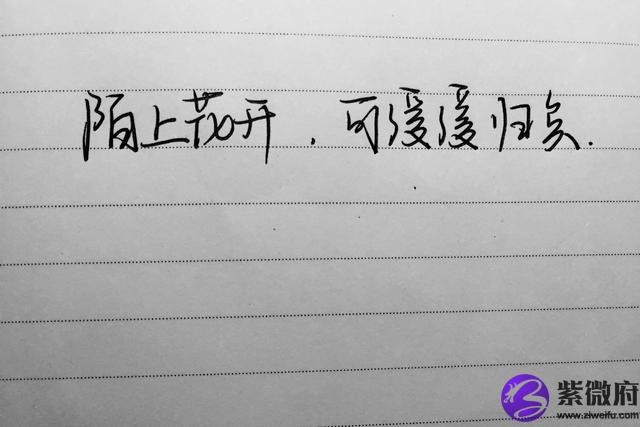 陌上花开，可缓缓归矣.
紫微府
www.ziweifu.com